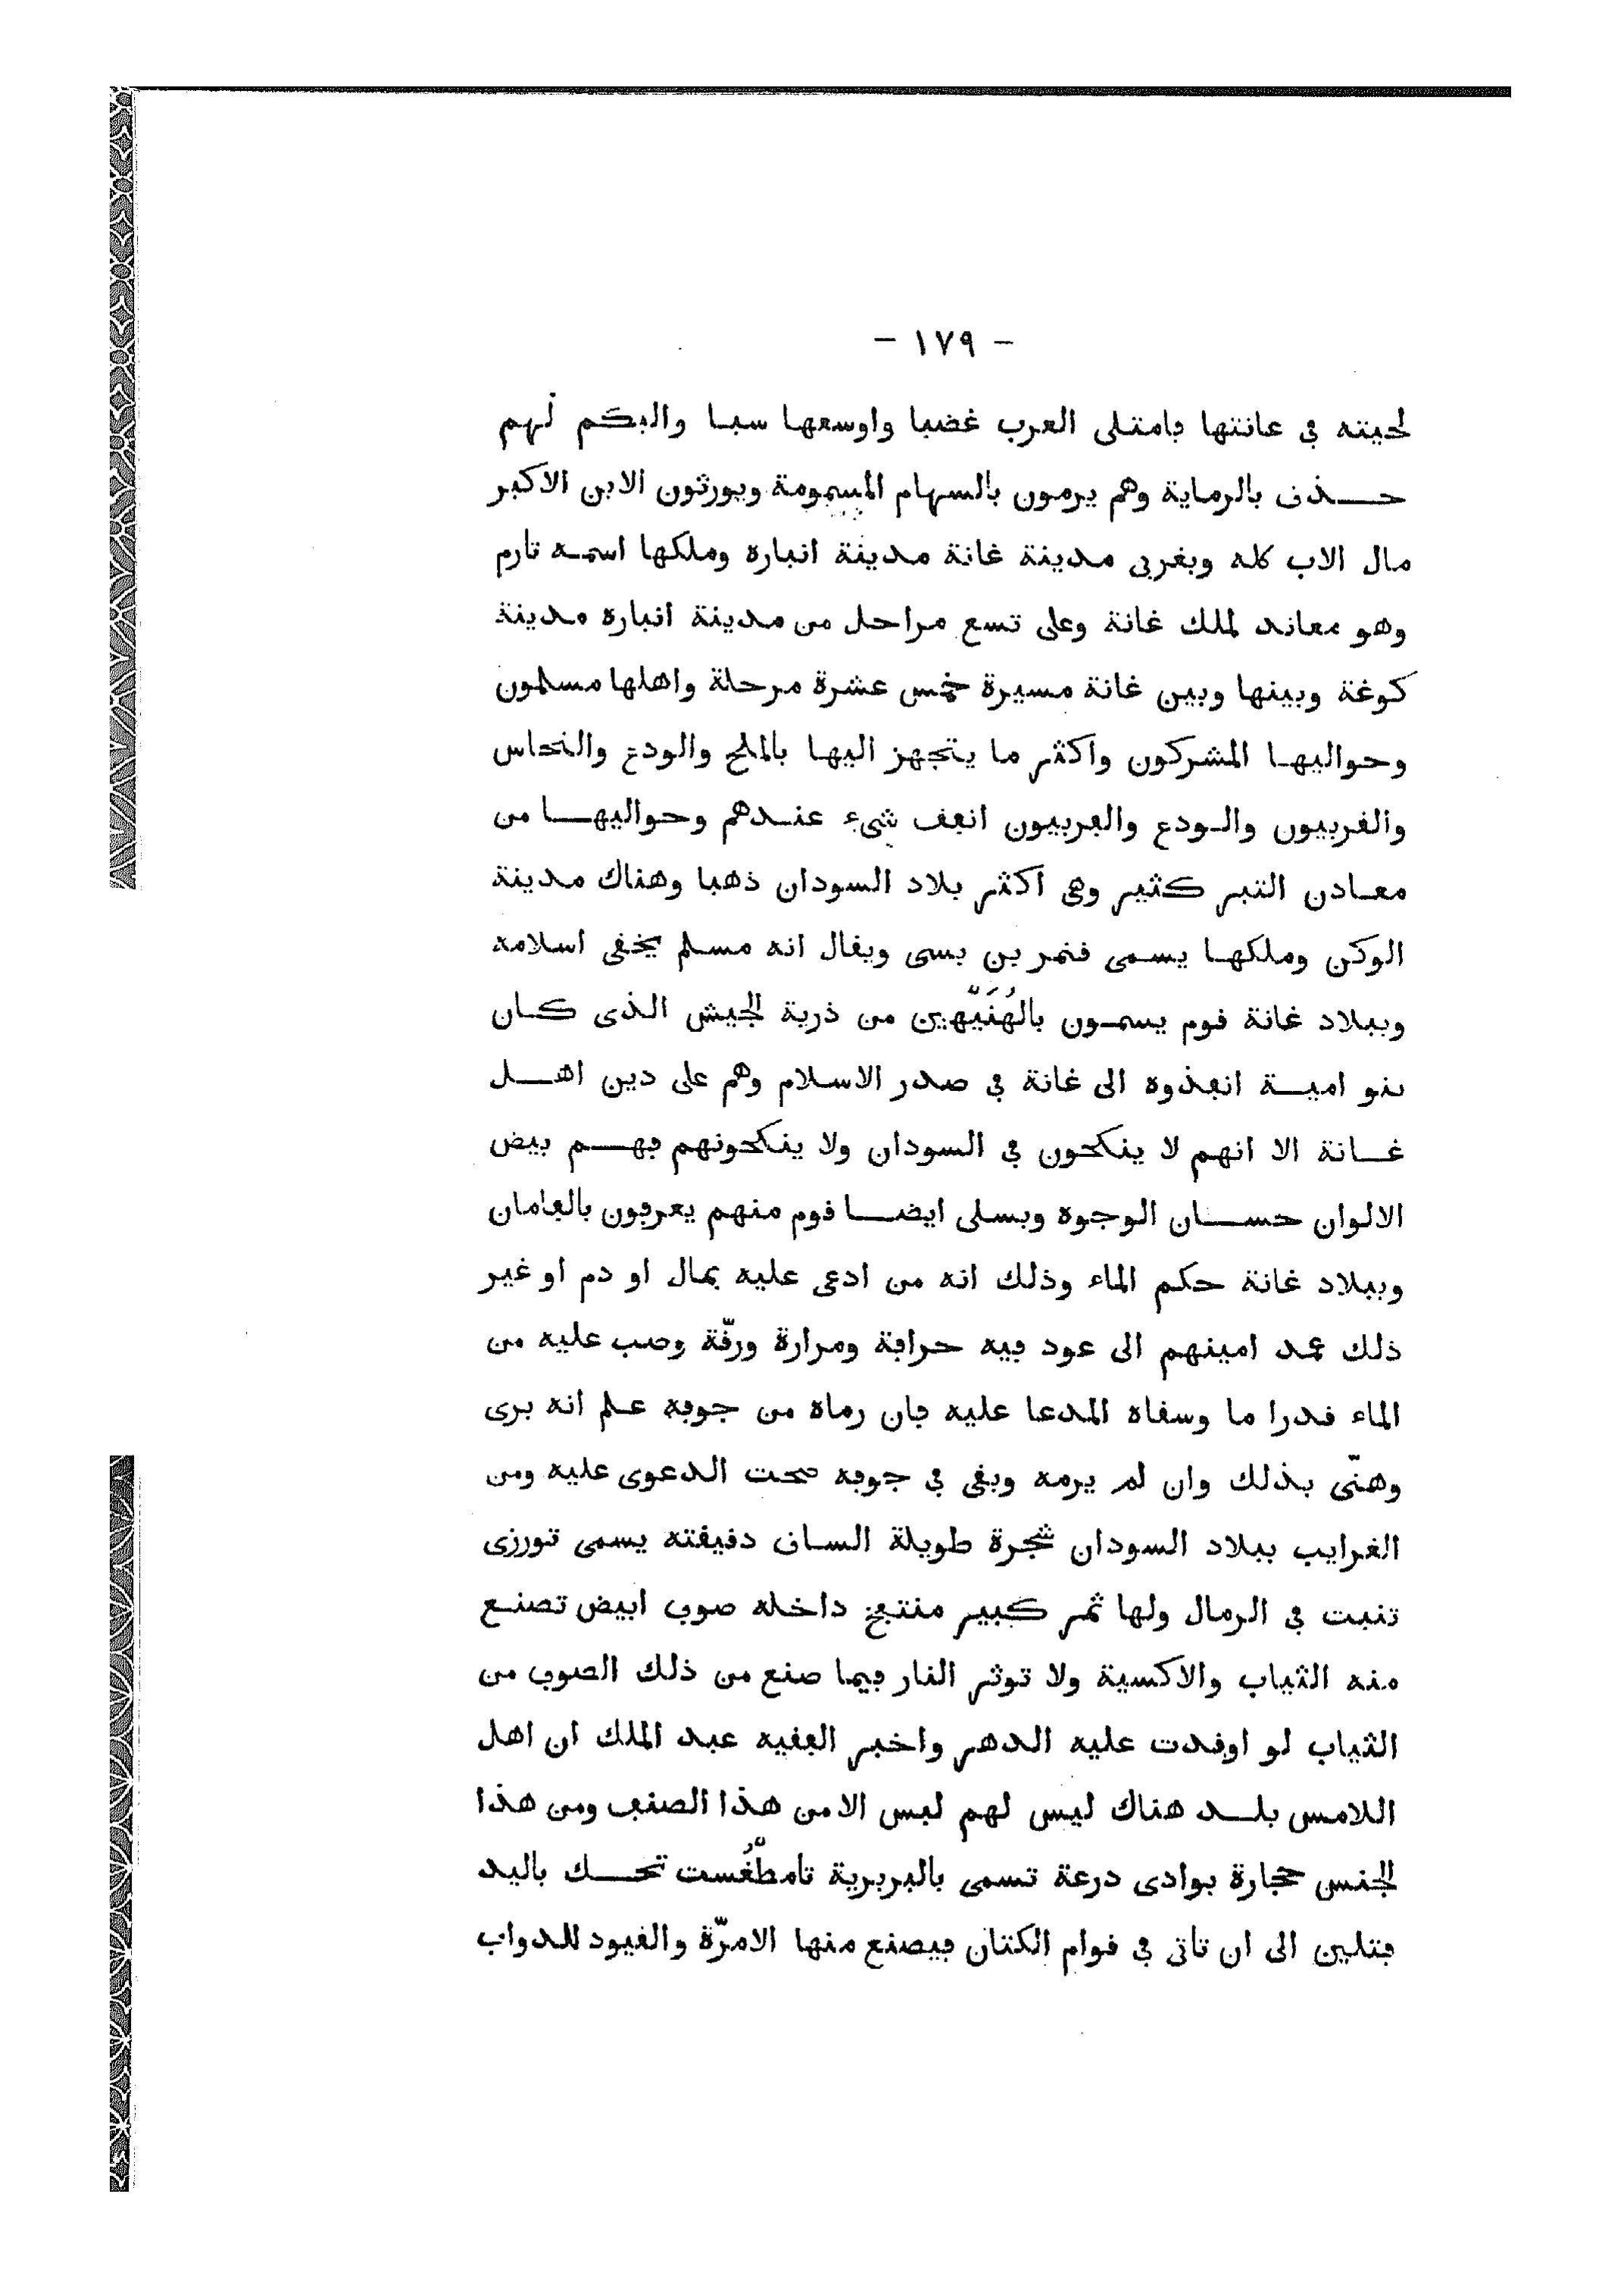 - ١٧٩ -
لحيته في عانتها فامتلى العرب غضبا واوسعها سبا والبكم لهم
حــذق بالرماية وهم يرمون بالسهام المسمومة ويورثون الابن الاكبر
مال الاب كله وبغربى مدينة غانة مدينة انبارة وملكها اسمه تارم
وهو معاند لملك غانة وعلى تسع مراحل من مدينة انبارة مدينة
كوغة وبينها وبين غانة مسيرة خمس عشرة مرحلة واهلها مسلمون
وحواليها المشركون واكثر ما يتجهز اليها بالملح والودع والنحاس
والفربيون والودع والفربيون انفق شىء عندهم وحواليهــا من
معادن التبر كثير وهى اكثر بلاد السودان ذهبا وهناك مدينة
الوكن وملكها يسمى قنمر بن بسى ويقال انه مسلم يخفى اسلامه
وببلاد غانة قوم يسمون بالهُنَيْهين من ذرية الجيش الذى كــان
بنو اميــة انفذوه الى غانة في صدر الاسلام وهم على دين اهــل
غــانة الا انهم لا ينكحون في السودان ولا ينكحونهم فهــم بيض
الالوان حســان الوجوه وبسلى ايضــا قوم منهم يعرفون بالفامان
وببلاد غانة حكم الماء وذلك انه من ادعى عليه بمال او دم او غير
ذلك عمد امينهم الى عود فيه حرافة ومرارة ورقّة وصب عليه من
الماء قدرا ما وسقاه المدعا عليه فان رماه من جوفه علم انه برى
وهنّى بذلك وان لم يرمه وبقى في جوفه صحت الدعوى عليه ومن
الغرايب ببلاد السودان شجرة طويلة الساق دقيقته يسمى تورزى
تنبت في الرمال ولها ثمر كبير منتفخ داخله صوف ابيض تصنع
منه الثياب والاكسية ولا توثر النار فيما صنع من ذلك الصوف من
الثياب لو اوقدت عليه الدهر واخبر الفقيه عبد الملك ان اهل
اللامس بلــد هناك ليس لهم لبس الا من هذا الصنف ومن هذا
الجنس حجارة بوادى درعة تسمى بالبربرية تامطغُّست تحــك باليد
فتلين الى ان تاتى في قوام الكتان فيصنع منها الامرّة والقيود للدواب